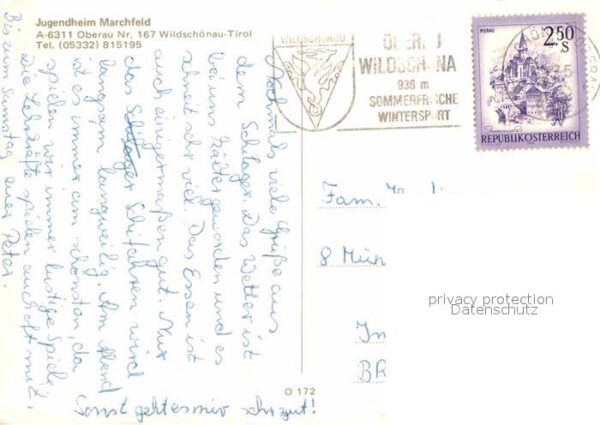 Jugendheim Marchfeld
A-6311 Oberau Nr. 167 Wildschönau-Tirol
Tel. (05332) 815195
WILDSCHÖNAU
OBERAU
WILDSCHÖNAU
936 m
SOMMERFRISCHE
WINTERSPORT
MURAU
2.50
S
REPUBLIK ÖSTERREICH
Nochmals viele Grüße aus
dem Schilager. Das Wetter ist
bei uns kälter geworden und es
schneit sehr viel. Das Essen ist
auch einigermaßen gut. Nur
das Schifahren wird
langsam langweilig. Am Abend
ist es immer am schönsten, da
spielen wir immer lustige Spiele
Die Lehrkräfte spielen auch oft mit.
Bis zum Samstag euer Peter.
Sonst geht es mir sehr gut!
Fam.
8 Mün
In
BR
privacy protection
Datenschutz
O 172